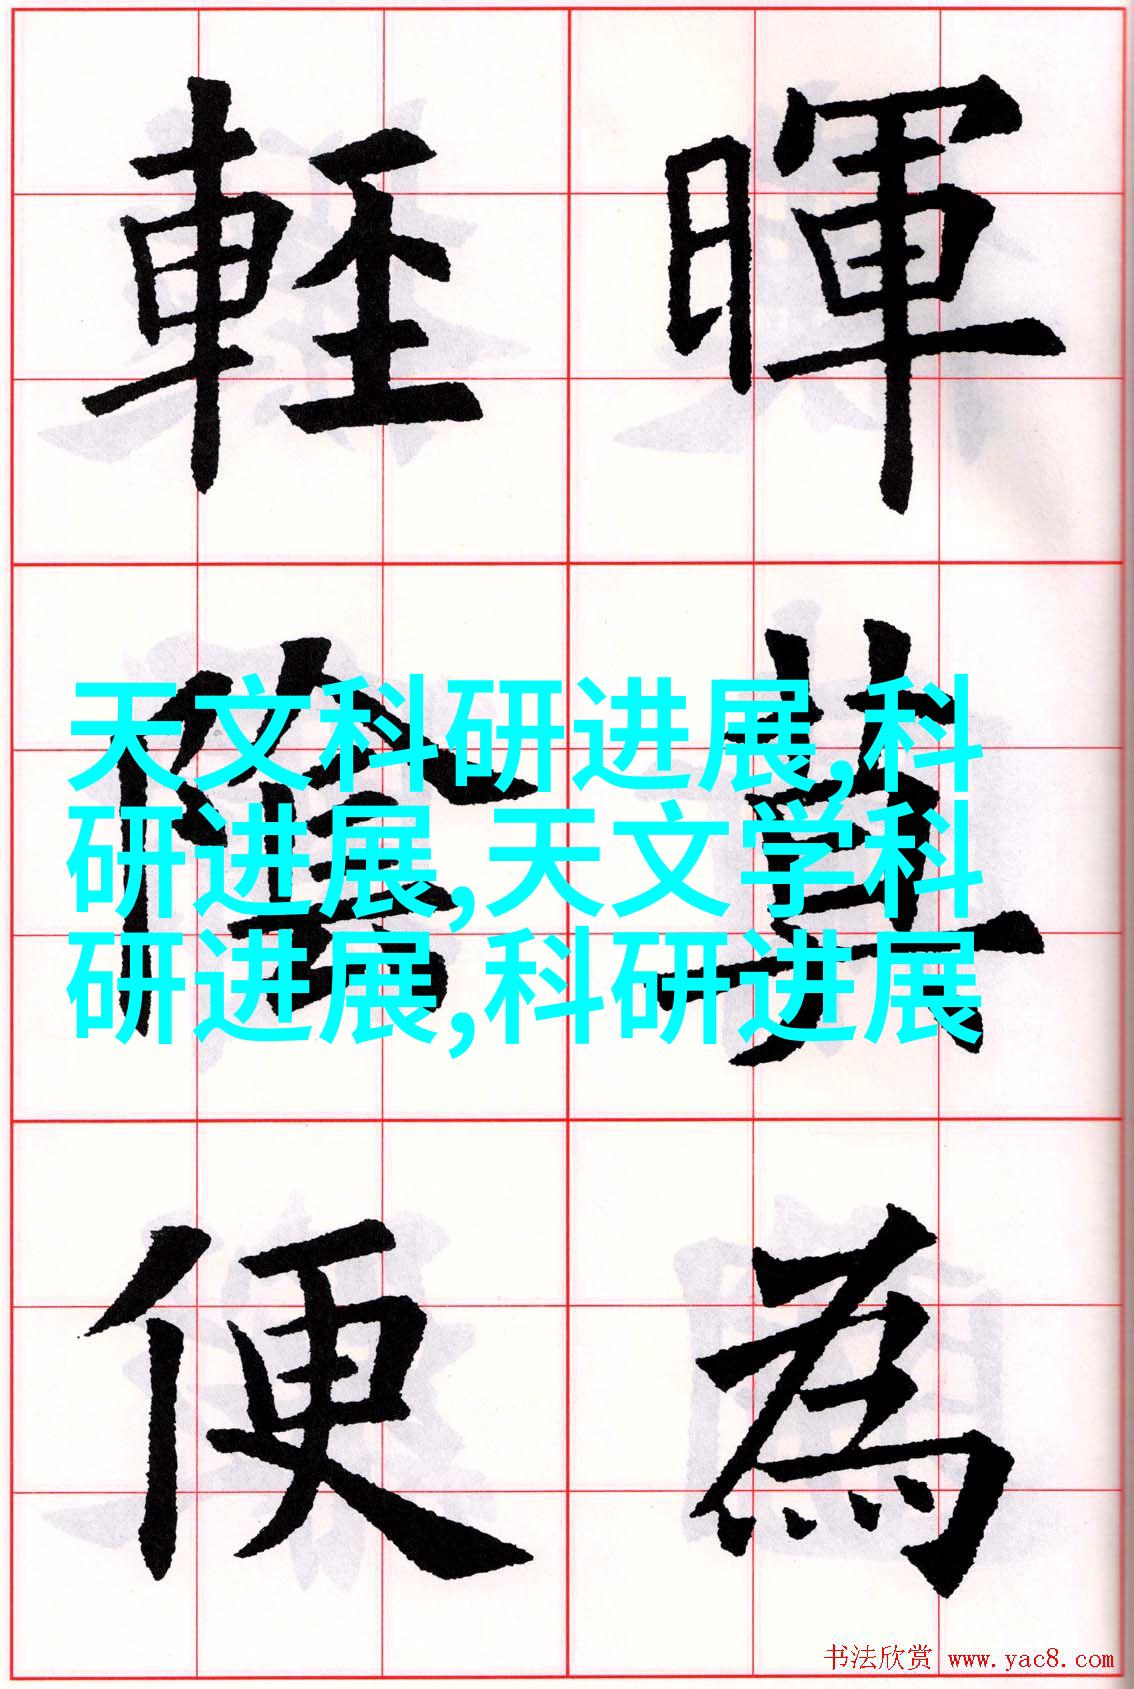 暉莫為
輕陰便
天文科研进展,科
研进展,天文学科
研进展,科研进展
书法欣赏 www.yac8.com